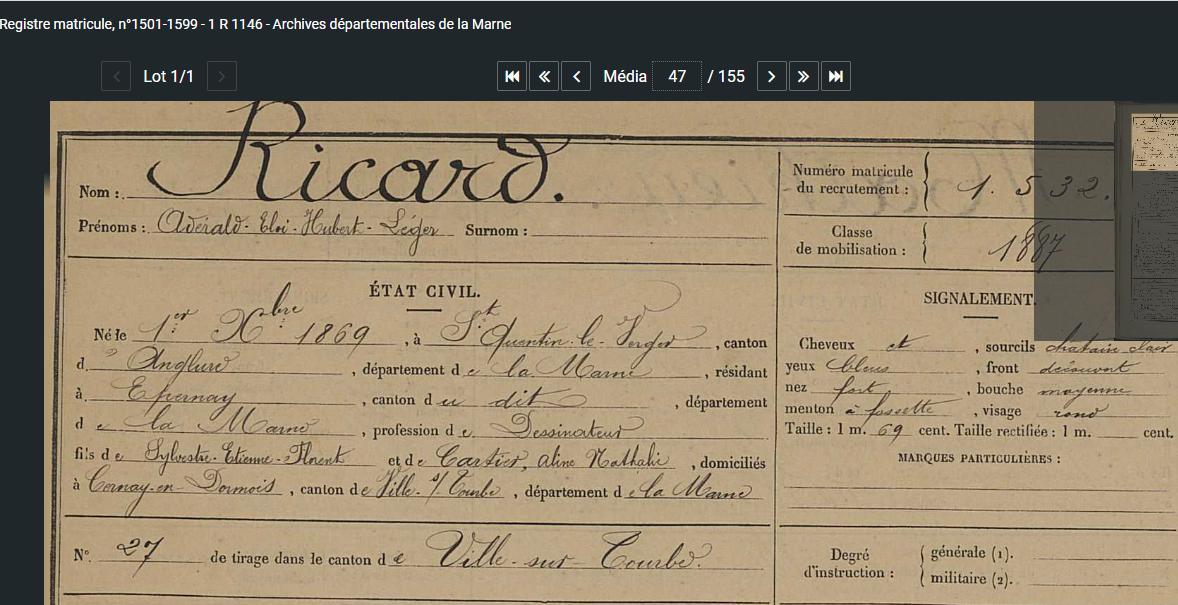 Registre matricule, n°1501-1599 - 1 R 1146 - Archives départementales de la Marne
Lot 1/1
Média 47 / 155
Nom : Ricard.
Prénoms : Adérald-Eloi-Hubert-Léger Surnom :
Numéro matricule du recrutement : 1.532.
Classe de mobilisation : 1887
ÉTAT CIVIL.
Né le 1er Xbre 1869, à St Quentin-le-Verger, canton
d' Anglure, département de la Marne, résidant
à Epernay, canton du dit, département
de la Marne, profession de Dessinateur
fils de Sylvestre-Etienne-Florent et de Cartier, Aline Nathalie, domiciliés
à Cernay-en-Dormois, canton de Ville-s/Tourbe, département de la Marne
N° 27 de tirage dans le canton de Ville-sur-Tourbe.
SIGNALEMENT.
Cheveux et, sourcils chatain clair
yeux bleus, front découvert
nez fort, bouche moyenne
menton à fossette, visage rond
Taille : 1 m. 69 cent. Taille rectifiée : 1 m. cent.
MARQUES PARTICULIÈRES :
Degré d'instruction : générale (1).
militaire (2).